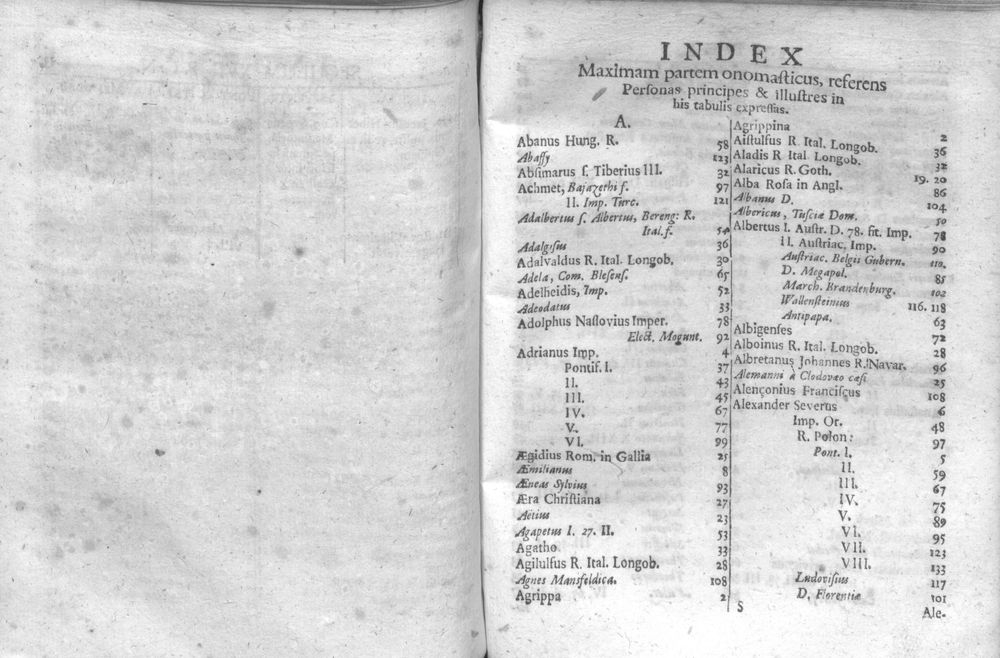 INDEX
Maximam partem onomaſticus, referens
Perſonas principes & illuſtres in
his tabulis expreſſas.
A.
Abanus Hung. R. 58
Abaſſy 123
Abſimarus ſ. Tiberius III. 32
Achmet, Bajazethi f. 97
II. Imp. Turc. 121
Adalbertus ſ. Albertus, Bereng: R.
Ital. f. 54
Adalgiſus 36
Adalvaldus R. Ital. Longob. 30
Adela, Com. Bleſenſ. 65
Adelheidis, Imp. 52
Adeodatus 33
Adolphus Naſſovius Imper. 78
Elect. Mogunt. 92
Adrianus Imp. 4
Pontif. I. 37
II. 43
III. 45
IV. 67
V. 77
VI. 99
Ægidius Rom. in Gallia 25
Æmilianus 8
Æneas Sylvius 93
Æra Chriſtiana 27
Aetius 23
Agapetus I. 27. II. 53
Agatho 33
Agilulfus R. Ital. Longob. 28
Agnes Mansfeldica. 108
Agrippa 2
Agrippina 2
Aiſtulfus R. Ital. Longob. 36
Aladis R Ital. Longob. 32
Alaricus R. Goth. 19. 20
Alba Roſa in Angl. 86
Albanus D. 104
Albericus, Tuſciæ Dom. 50
Albertus I. Auſtr. D. 78. fit. Imp. 78
II. Auſtriac. Imp. 90
Auſtriac. Belgii Gubern. 110.
D. Megapol. 85
March. Brandenburg. 102
Wallenſteinius 116. 118
Antipapa. 63
Albigenſes 72
Alboinus R. Ital. Longob. 28
Albretanus Johannes R. Navar. 96
Alemanni à Clodovæo cæſi 25
Alençonius Franciſcus 108
Alexander Severus 6
Imp. Or. 48
R. Polon: 97
Pont. I. 5
II. 59
III. 67
IV. 75
V. 89
VI. 95
VII. 123
VIII. 133
Ludoviſius 117
D. Florentiæ 101
S
Ale-